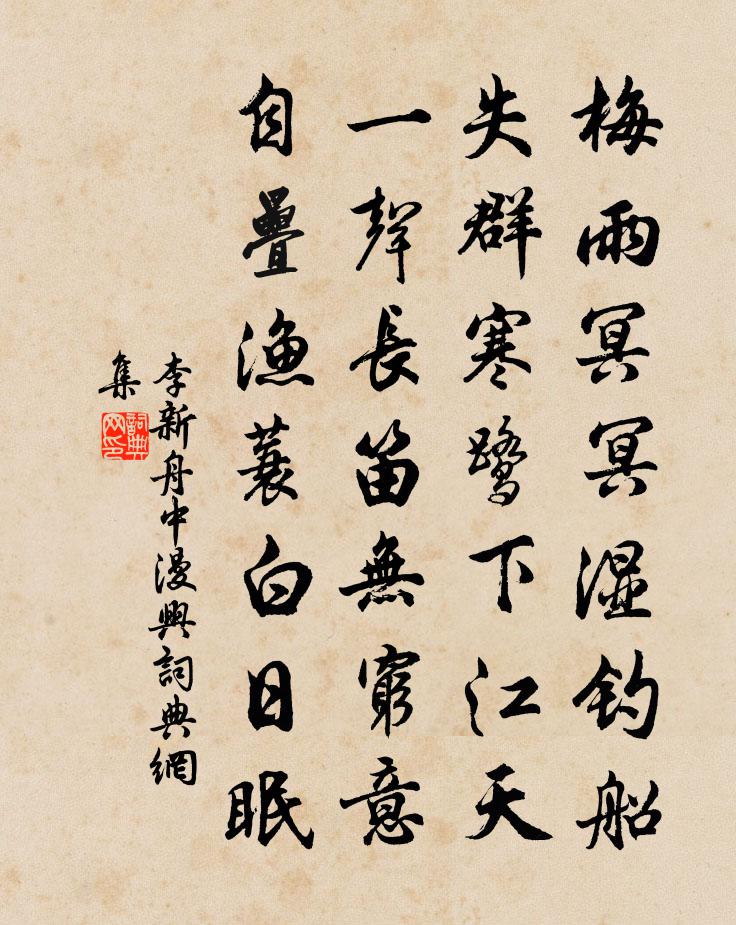 梅雨冥冥湿钓船
失群寒鹭下江天
一聲長笛無窮意
自疊漁蓑白日眠
李新舟中漫興詞典網
集
詞典
网印